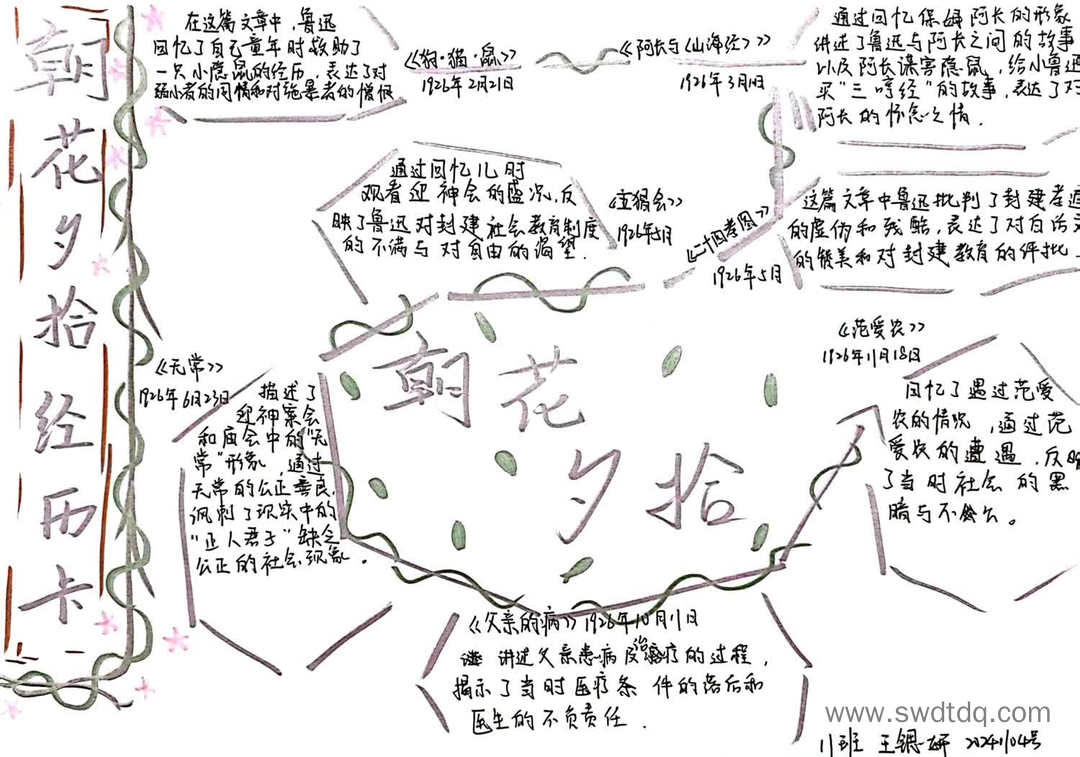 朝花夕拾经历卡
在这篇文章中，鲁迅
回忆了自己童年时救助了
一只小隐鼠的经历，表达了对
弱小者的同情和对强暴者的憎恨
《狗·猫·鼠》
1926年2月21日
《阿长与《山海经》》
1926年3月10日
通过回忆保姆阿长的形象
讲述了鲁迅与阿长之间的故事
以及阿长谋害隐鼠，给小鲁迅
买"三哼经"的故事，表达了对
阿长的怀念之情．
通过回忆儿时
观看迎神会的盛况，反
映了鲁迅对封建社会教育制度
的不满与对自由的渴望．
《五猖会》
1926年5月
《二十四孝图》
1926年5月
这篇文章中鲁迅批判了封建孝道
的虚伪和残酷，表达了对白话文
的赞美和对封建教育的评批
《无常》
1926年6月23日
描述了
迎神赛会
和庙会中的"无
常"形象，通过
无常的公正善良，
讽刺了现实中的
"正人君子"缺乏
公正的社会现象。
朝花
夕拾
《范爱农》
1926年11月18日
回忆了遇过范爱
农的情况，通过范
爱农的遭遇，反映
了当时社会的黑
暗与不公。
《父亲的病》1926年10月11日
讲述父亲患病及治疗的过程，
揭示了当时医疗条件的落后和
医生的不负责任．
www.swdtdq.com
11班 王锶研 20241104号